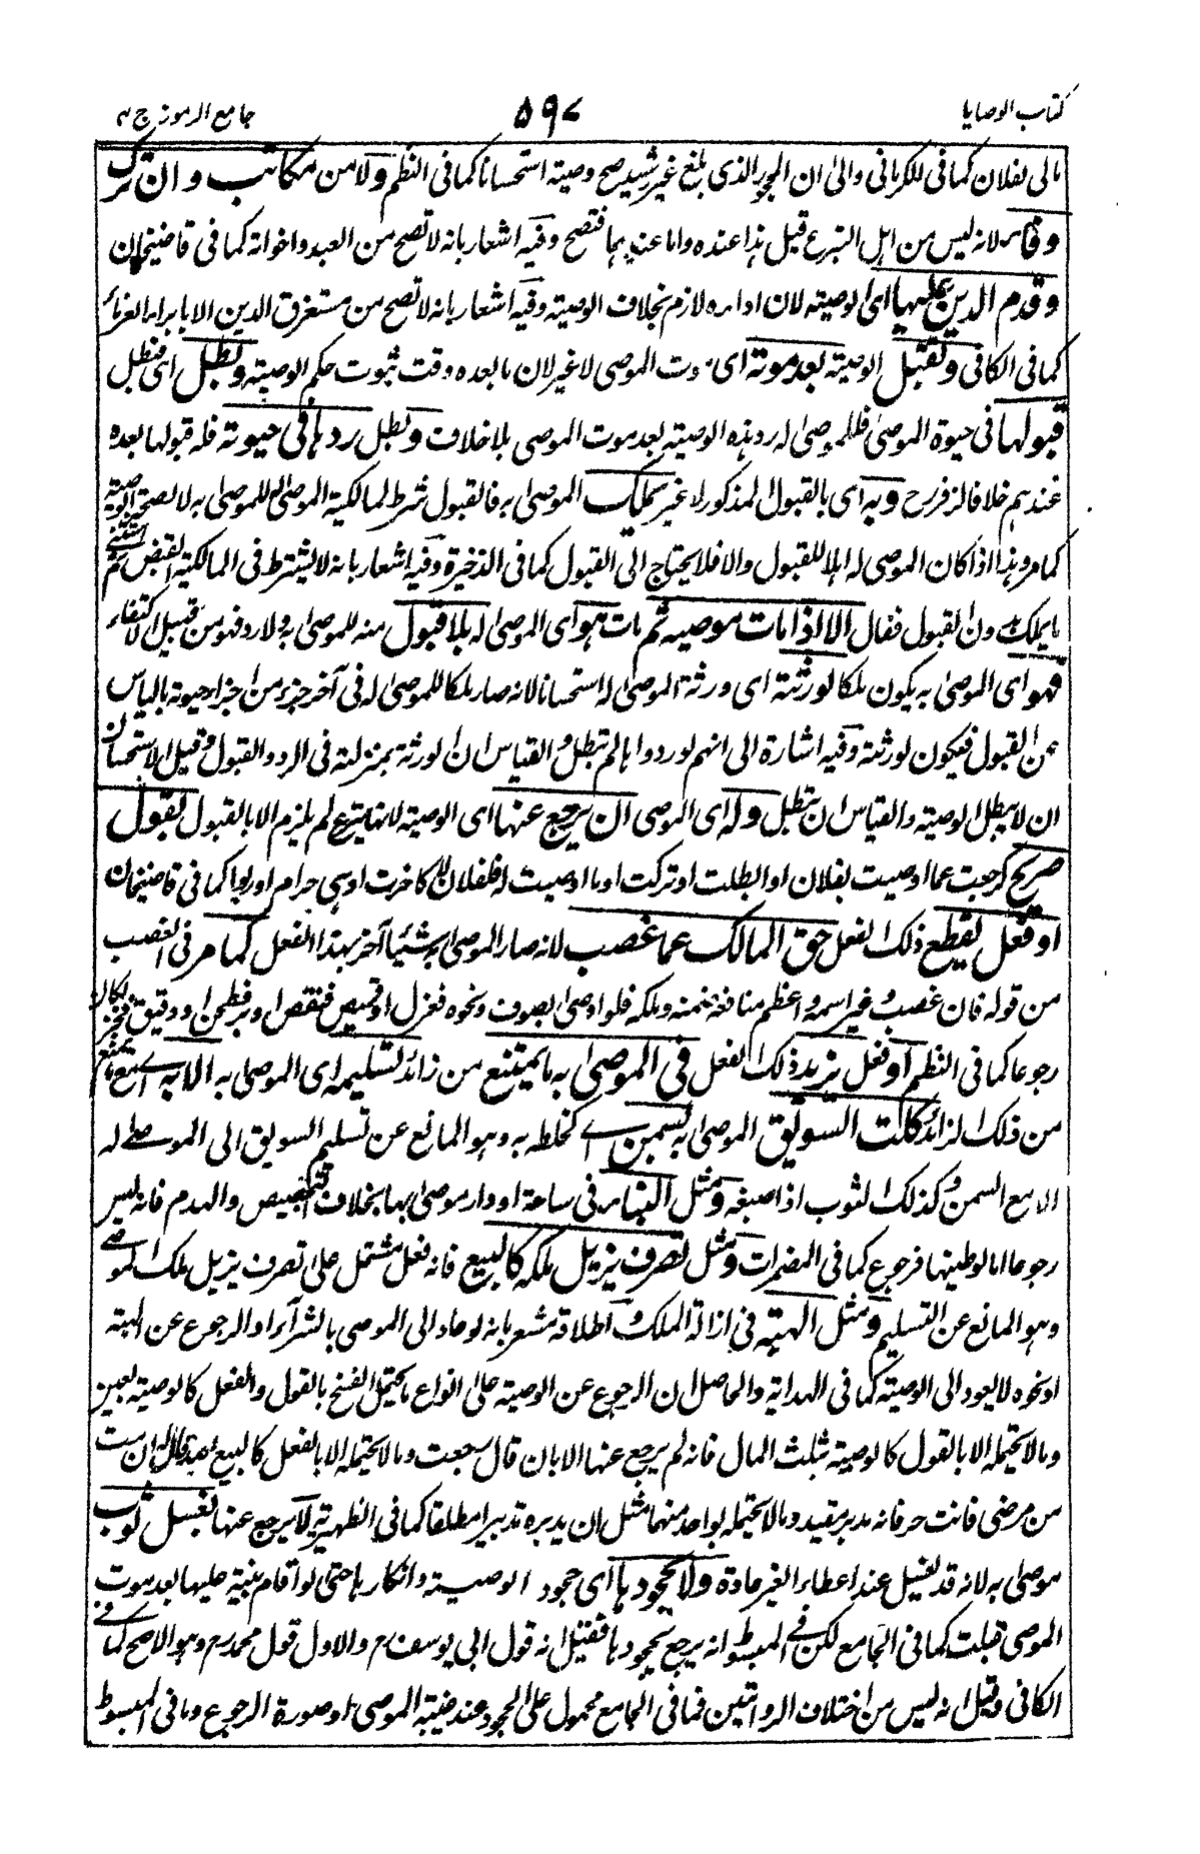 كتاب الوصايا
٥٩٧
جامع الرموز ج ٢
مالى لفلان كما فى الكرمانى والى ان المحجور الذى بلغ غير رشيد صح وصيته استحسانا كما فى النظم ولا من مكاتب وان ترك
وفاء لانه ليس من اهل التبرع قيل هذا عنده واما عندهما فتصح وفيه اشعار بانه لا تصح من العبد واخواته كما فى قاضيخان
وقدم الدين عليها اى الوصية لان اداءه لازم بخلاف الوصية وفيه اشعار بانه لا تصح من مستغرق الدين الا بابراء الغرماء
كما فى الكافى وتقبل الوصية بعد موته اى موت الموصى لا غير لان ما بعده وقت ثبوت حكم الوصية وبطل اى فتطل
قبولها فى حيوة الموصى فللموصى له رد هذه الوصية بعد موت الموصى بلا خلاف وبطل ردها فى حيوته فله قبولها بعده
عندهم خلافا لزفر رح وبه اى بالقبول المذكور لا غير يملك الموصى به فالقبول شرط لمالكية الموصى له للموصى به لا لصحة الوصية
كما مر وهذا اذا كان الموصى له اهلا للقبول والا فلا يحتاج الى القبول كما فى الذخيرة وفيه اشعار بانه لا يشترط فى المالكية القبض ثم استثنى
ما يملك بدون القبول فقال الا اذا مات موصيه ثم مات هو اى الموصى له بلا قبول منه للموصى به ولا رد فهو من قبيل الاكتفاء
فهو اى الموصى به يكون ملكا لورثته اى ورثة الموصى له استحسانا لانه صار ملكا للموصى له فى آخر جزء من اجزاء حيوته بالياس
عن القبول فيكون لورثته وفيه اشارة الى انهم لو ردوا ما لم تبطل والقياس ان الورثة بمنزلته فى الرد والقبول وقيل الاستحسان
ان لا يبطل الوصية والقياس ان تبطل وله اى الموصى ان يرجع عنها اى الوصية لانها تبرع لم يلزم الا بالقبول بقول
صريح كرجعت عما اوصيت بفلان او ابطلت او تركت او ما اوصيت له فلفلان لا كاخرت او هى حرام او ربوا كما فى قاضيخان
او فعل يقطع ذلك الفعل حق المالك عما غصب لانه صار الموصى به شيئا آخر بهذا الفعل كما مر فى الغصب
من قوله فان غصب وغير اسمه واعظم منافعه ضمنه وملكه فلو اوصى بصوف ونحوه فغزل او قميص فنقض او بر فطحن او دقيق فخبز لكان
رجوعا كما فى النظم او فعل يزيد ذلك الفعل فى الموصى به ما يمتنع من زائد تسليمه اى الموصى به الا به اى مع ما يمتنع
من ذلك الزائد كلت السويق الموصى به بسمن اى كخلطه به وهو المانع عن تسليم السويق الى الموصى له
الا مع السمن وكذلك الثوب اذا صبغه ومثل البناء فى ساحة او دار موصى بها بخلاف التجصيص والهدم فانه ليس
رجوعا اما لو طينها فرجوع كما فى المضمرات ومثل تصرف يزيل ملكه كالبيع فانه فعل مشتمل على تصرف يزيل ملك الموصى
وهو المانع عن التسليم ومثل الهبة فى ازالة الملك واطلاقه مشعر بانه لو عاد الى الموصى بالشراء او الرجوع عن الهبة
او نحوه لا يعود الى الوصية كما فى الهداية والحاصل ان الرجوع عن الوصية على انواع ما يحتمل الفسخ بالقول والفعل كالوصية بعين
وما لا يحتمله الا بالقول كالوصية بثلث المال فانه لم يرجع عنها الا بان قال رجعت وما لا يحتمله الا بالفعل كالبيع بعد ما قال له ان مت
من مرضى فانت حر فانه مدبر مقيد وما لا يحتمله بواحد منهما مثل ان يدبره تدبيرا مطلقا كما فى الظهيرية لا يرجع عنها بغسل ثوب
موصى به لانه قد يغسل عند اعطاء الغير عادة ولا بجحودها اى جحود الوصية وانكارها حتى لو اقام بينة عليها بعد موت
الموصى قبلت كما فى الجامع لكن فى المبسوط انه يرجع بجحودها فقيل انه قول ابى يوسف رح والاول قول محمد رح وهو الاصح كما فى
الكافى وقيل انه ليس من اختلاف الروايتين فما فى الجامع محمول على الجحود عند غيبة الموصى له او صورة الرجوع وما فى المبسوط